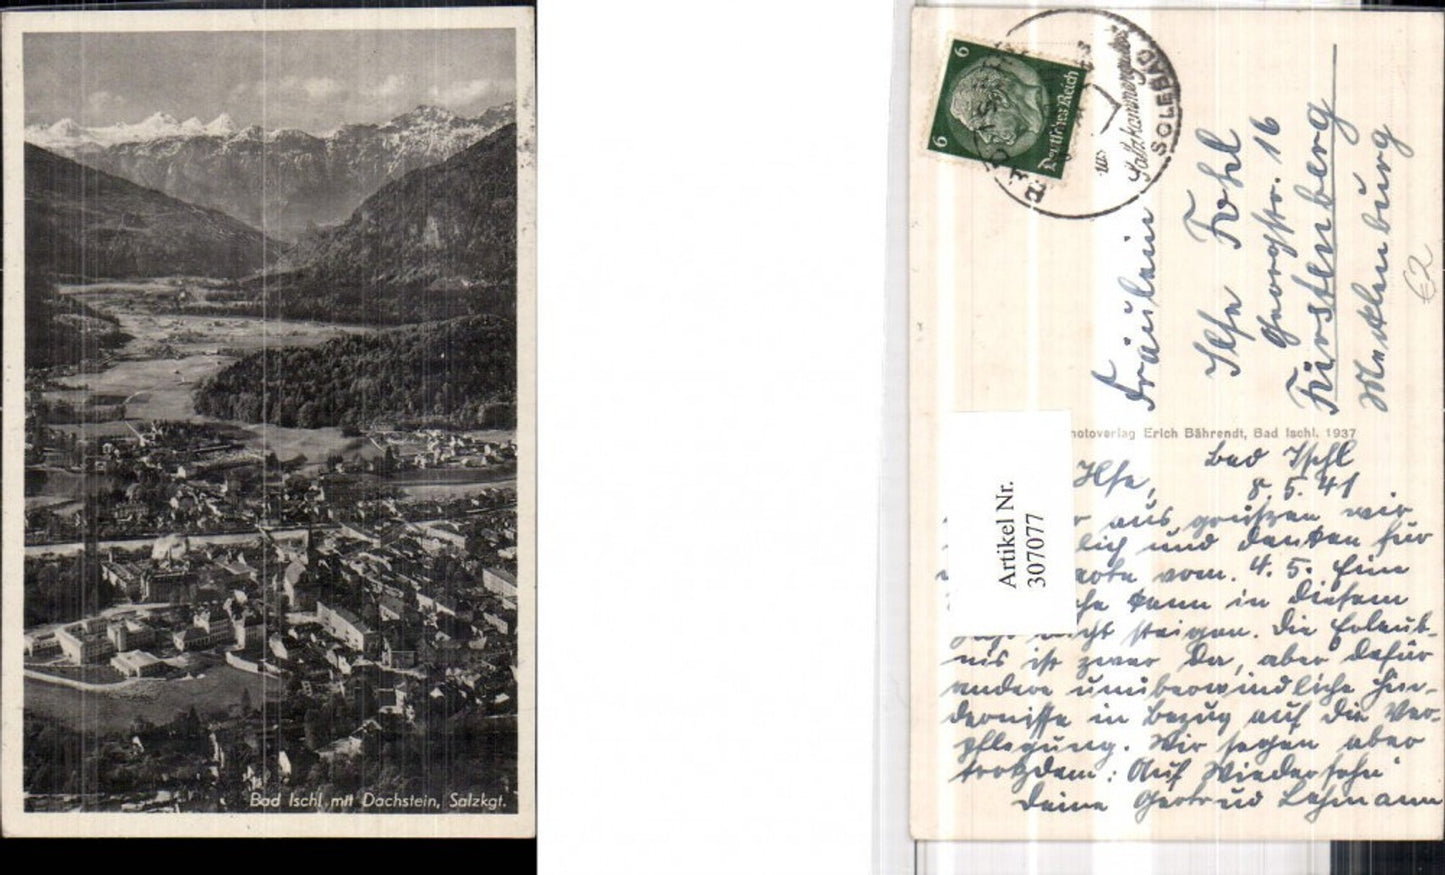 Bad Ischl mit Dachstein, Salzkgt.
6
6
Deutsches Reich
Salzkammergutes
SOLEBAD
Fräulein
Ilse Fohl
Georgstr. 16
Fürstenberg
Mecklenburg
€2
notoverlag Erich Bährendt, Bad Ischl. 1937
Artikel Nr.
307077
Bad Ischl
8. 5. 41
Ilse,
aus grüßen wir
lich und danken für
vom 4. 5. Eine
kann in diesem
nicht steigen. Die Erlaub-
nis ist zwar da, aber dafür
andere unüberwindliche Hin-
dernisse in Bezug auf die Ver-
pflegung. Wir sagen aber
trotzdem: Auf Wiedersehn
Deine Gertrud Lehmann